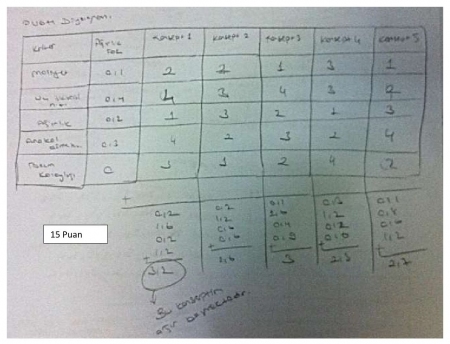 Puan Diyagramı.
Kriter Ağırlık Konsept 1 Konsept 2 Konsept 3 Konsept 4 Konsept 5
Maliyet 0,1 2 2 1 3 1
0,4 4 3 4 3 2
Ağırlık 0,2 1 3 2 1 3
0,3 4 2 3 2 4
Kolaylığı 0 3 3 2 4 2
+
0,2 0,2 0,1 0,3 0,1
1,6 1,2 1,6 1,2 0,8
0,2 0,6 0,4 0,2 0,6
1,2 0,6 0,9 0,6 1,2
3,2 2,6 3 2,3 2,7
15 Puan
Bu konseptin